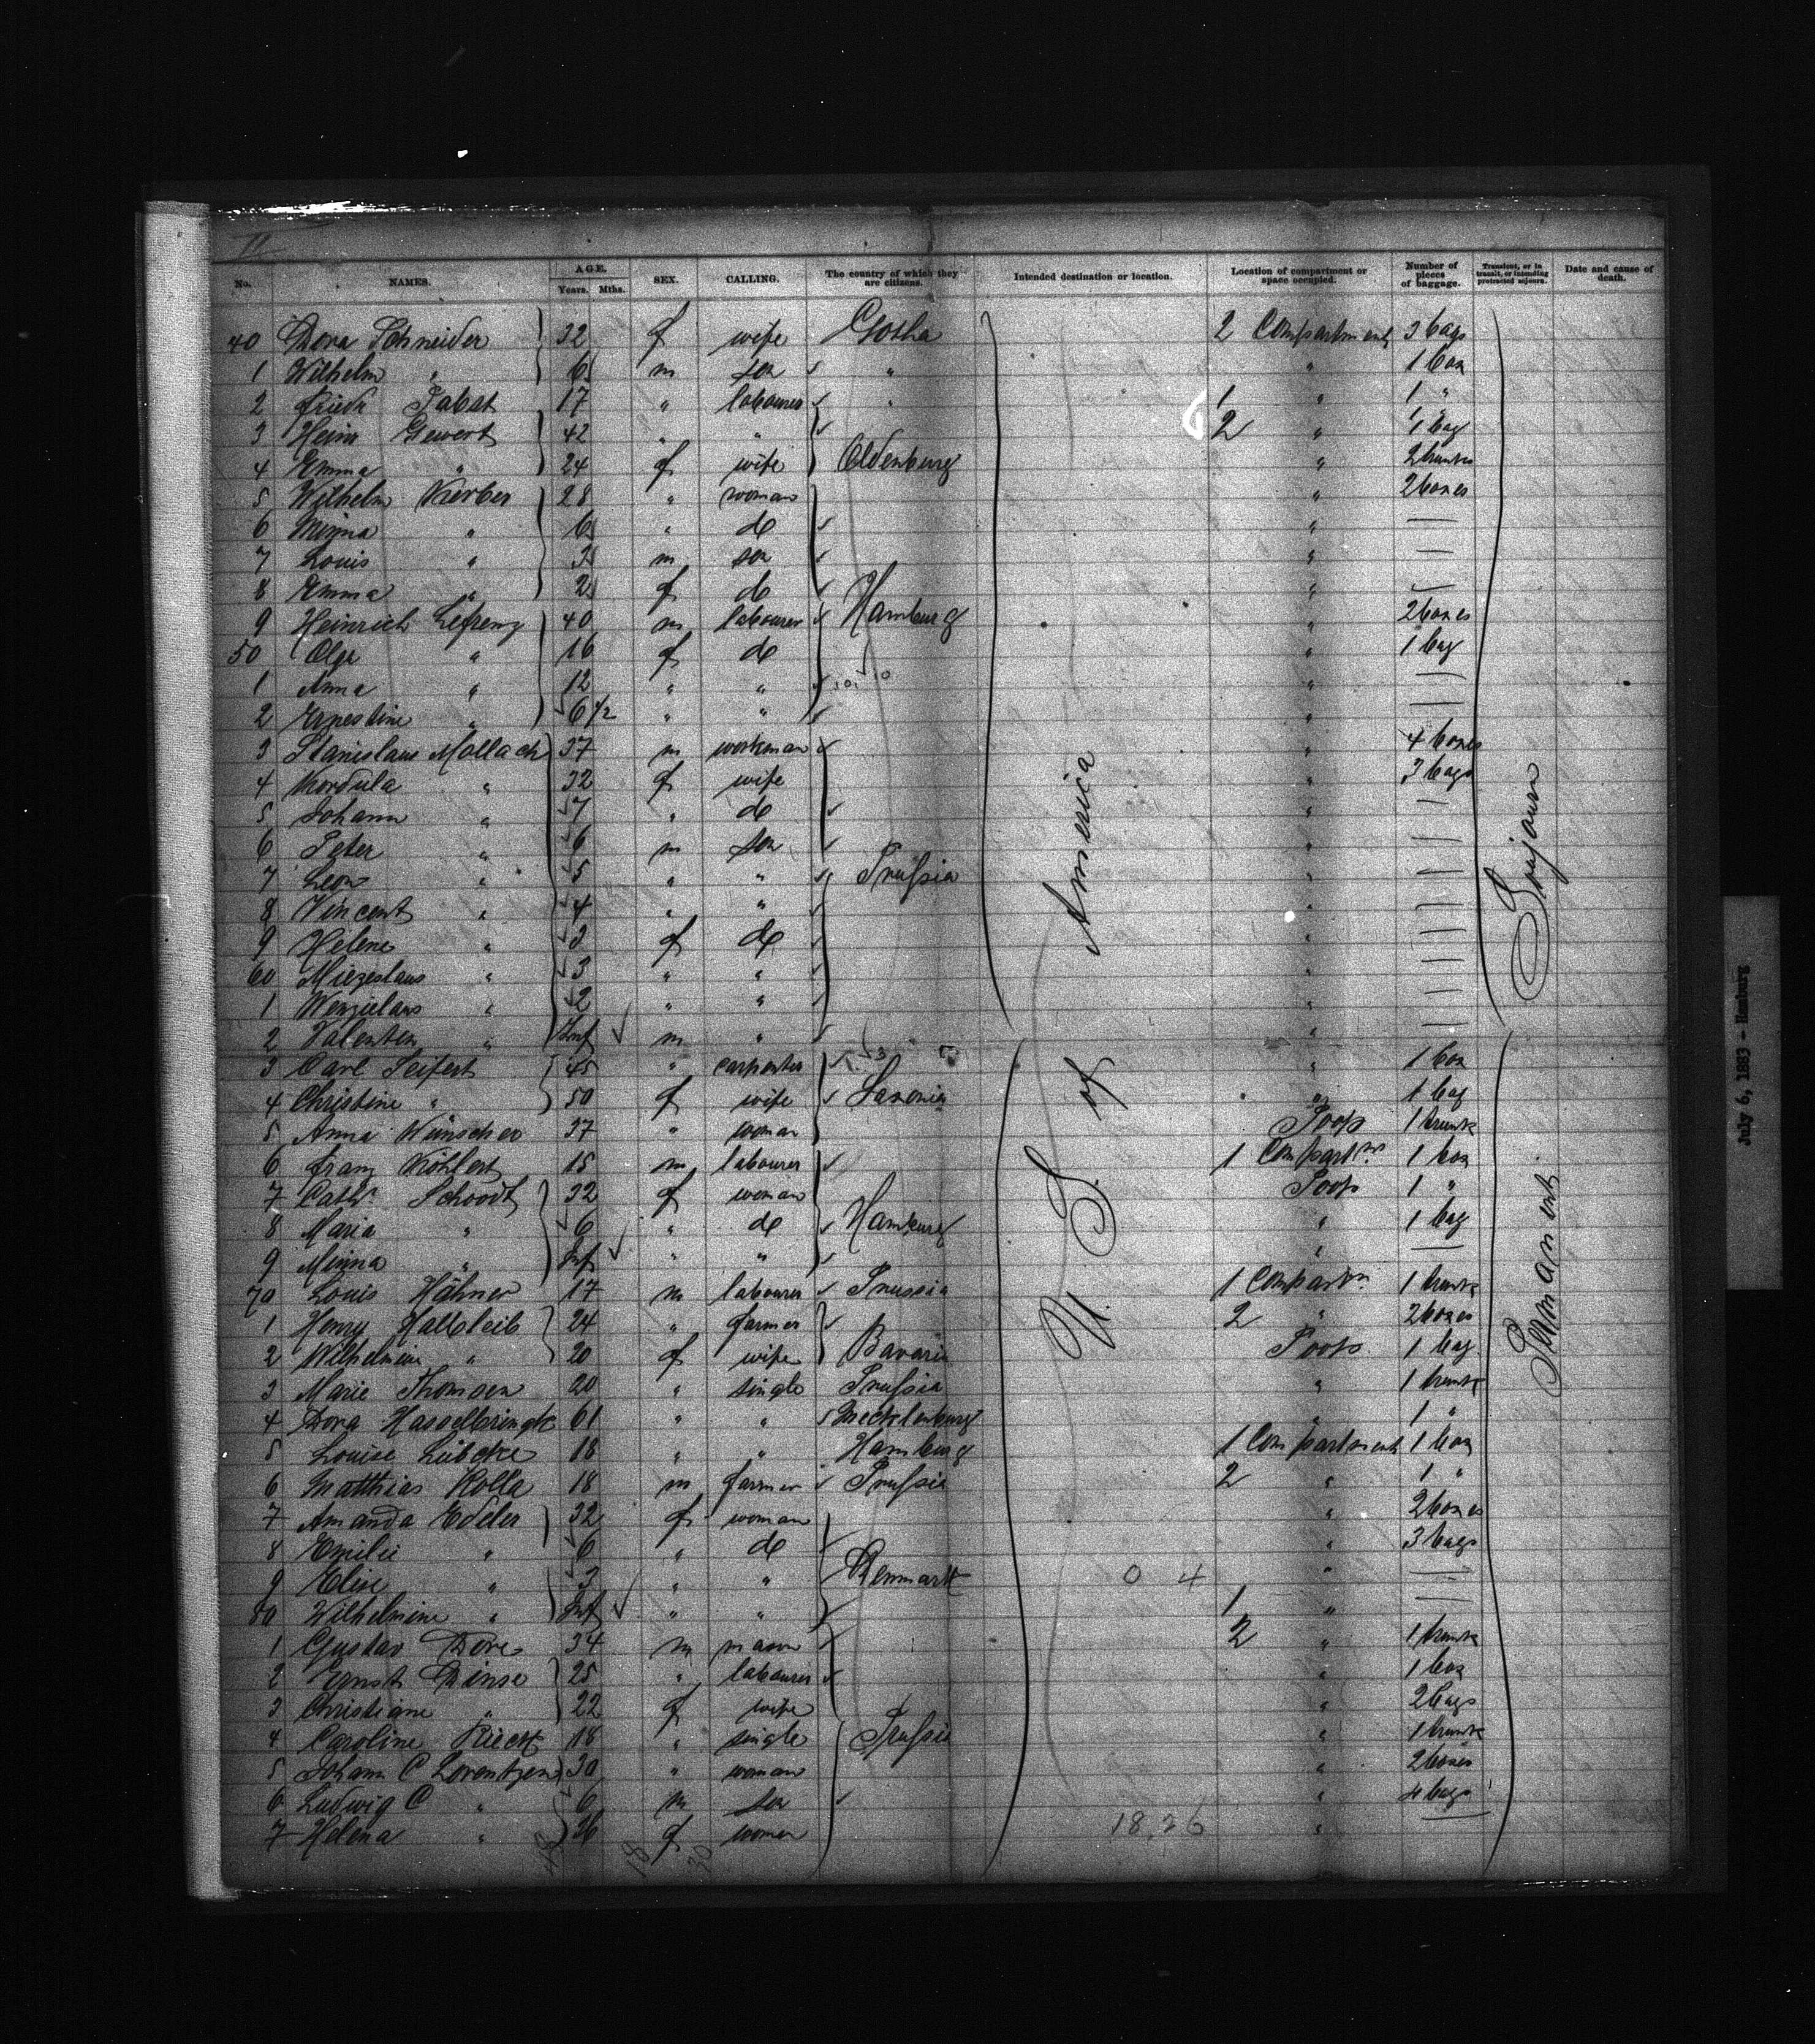 11
No. NAMES. AGE. Years. Mths. SEX. CALLING. The country of which they are citizens. Intended destination or location. Location of compartment or space occupied. Number of pieces of baggage. Transient, or in transit, or intending protracted sojourn. Date and cause of death.
40 Dora Schneider 32 f wife Gotha 2 Compartment 3 bags
1 Wilhelm " 6 m son " " 1 box
2 Frieda Pabst 17 " labourer " 1 " 1 "
3 Heinr Gewert 42 " " 2 " 1 bag
4 Emma " 24 f wife Oldenburg " 2 trunks
5 Wilhelm Kerber 28 " woman " 2 boxes
6 Minna " 6 " do " —
7 Louis " 3 m son " —
8 Emma " 2 f do " —
9 Heinrich Lefreny 40 m labourer Hamburg " 2 boxes
50 Olga " 16 f do " 1 bag
1 Anna " 12 " " " —
2 Ernestine " 6 1/2 " " " —
3 Stanislaus Mollach 37 m workman " 4 boxes
4 Kordula " 32 f wife " 3 bags
5 Johann " 7 " do " —
6 Peter " 6 m son " —
7 Leon " 5 " " Prussia " —
8 Vincent " 4 " " " —
9 Helene " 3 f do " —
60 Miezeslaus " 3 " " " —
1 Wenzielaus " 2 " " " —
2 Valenten " Inf m " " —
3 Carl Seifert 45 " carpenter " 1 box
4 Christine " 50 f wife Saxonia " 1 bag
5 Anna Wünscher 37 " woman Poop 1 trunk
6 Franz Köhlert 15 m labourer 1 Compartm. 1 box
7 Cath. Schoodt 32 f woman Poop 1 "
8 Maria " 6 " do Hamburg " 1 bag
9 Minna " Inf " " " —
70 Louis Hähner 17 m labourer Prussia 1 Compartm. 1 trunk
1 Henry Halbleib 24 " farmer 2 " 2 boxes
2 Wilhelmine " 20 f wife Bavaria Poop 1 bag
3 Marie Thomsen 20 " single Prussia " 1 trunk
4 Dora Hasselbringk 61 " " Mecklenburg " 1 "
5 Louise Lübcke 18 " " Hamburg 1 Compartment 1 box
6 Matthias Kolla 18 m farmer Prussia 2 " 1 "
7 Amanda Edeler 32 f woman " 2 boxes
8 Emilie " 6 " do " 3 bags
9 Elise " 3 " " Denmark 0 4 " —
80 Wilhelmine " Inf " " 1 " —
1 Gustav Dore 34 m mason 2 " 1 trunk
2 Ernst Dinse 25 " labourer " 1 box
3 Christiane " 22 f wife " 2 bags
4 Caroline Rieck 18 " single Prussia " 1 trunk
5 Johann C Lorentzen 30 " woman " 2 boxes
6 Ludwig C " 6 m son " 4 bags
7 Helena " 26 f women 18.26 " —
U. S. of America
Sojourn
Permanent
18 30
July 6, 1883 - Hamburg